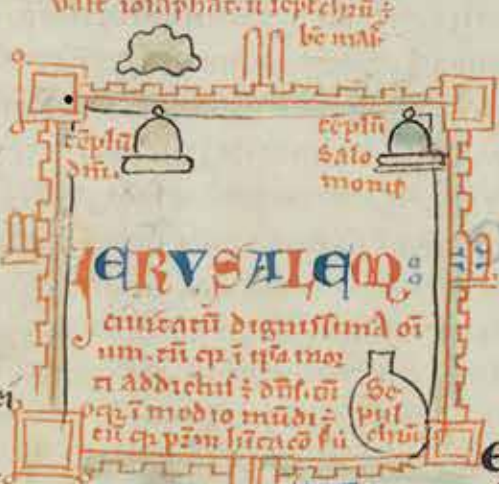 iosaphat. u sepelchrū ē
bē mar
tēplū
dni.
tēplū
Salo
monis
IERUSALEM:
civitatū dignissima oī
um. tū q̄ ī ip̄a mor
ti addictus ē dn̄s. tū
qr̄ ī medio mūdi ē
tū q̄
Se
pul
chrū